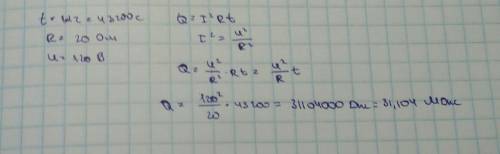 t = 12 г = 43200 с
R = 20 Ом
U = 120 В
Q = I²Rt
I² = U²/R²
Q = U²/R² · Rt = U²/R t
Q = 120²/20 · 43200 = 31104000 Дж = 31,104 МДж